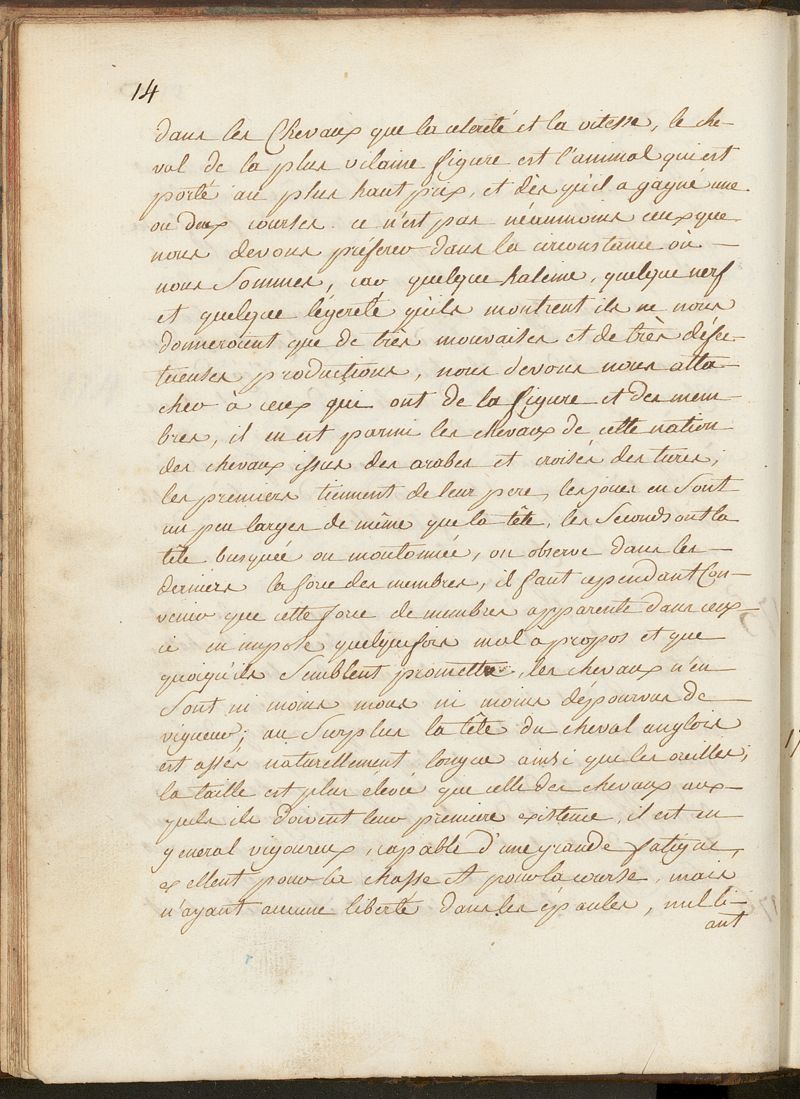 14
dans les Chevaux que la celerité et la vitesse, le che-
val de la plus vilaine figure est l'animal qui est
porté au plus haut prix, et dès qu'il a gagné une
ou deux courses. ce n'est pas néanmoins ceux que
nous devons préferer dans la circonstance où
nous Sommes, car quelque haleine, quelque nerf
et quelque légereté qu'ils montrent ils ne nous
donneroient que de très mauvaises et de très défec-
tueuses productions, nous devons nous atta-
cher à ceux qui ont de la figure et des mem-
bres, il en est parmi les chevaux de cette nation
des chevaux issus des arabes et croisés des turcs,
les premiers tiennent de leur pere, les joues en Sont
un peu larges de même que la tête, les Seconds ont la
tête busquée ou moutonnée, on observe dans les
derniers la force des membres, il faut cependant Con-
venir que cette force de membres apparente dans ceux
ci en impose quelquefois mal à propos et que
quoiqu'ils Semblent promettre, les chevaux n'en
Sont ni moins mous ni moins dépourvus de
vigueur; au Surplus la tête du cheval anglois
est assés naturellement longue ainsi que les oreilles;
la taille est plus élevée que celle des chevaux aux-
quels ils doivent leur premiere existence, il est en
general vigoureux, capable d'une grande fatigue,
excellent pour la chasse et pour la course, mais
n'ayant aucune liberté dans les épaules, nul li-
ant